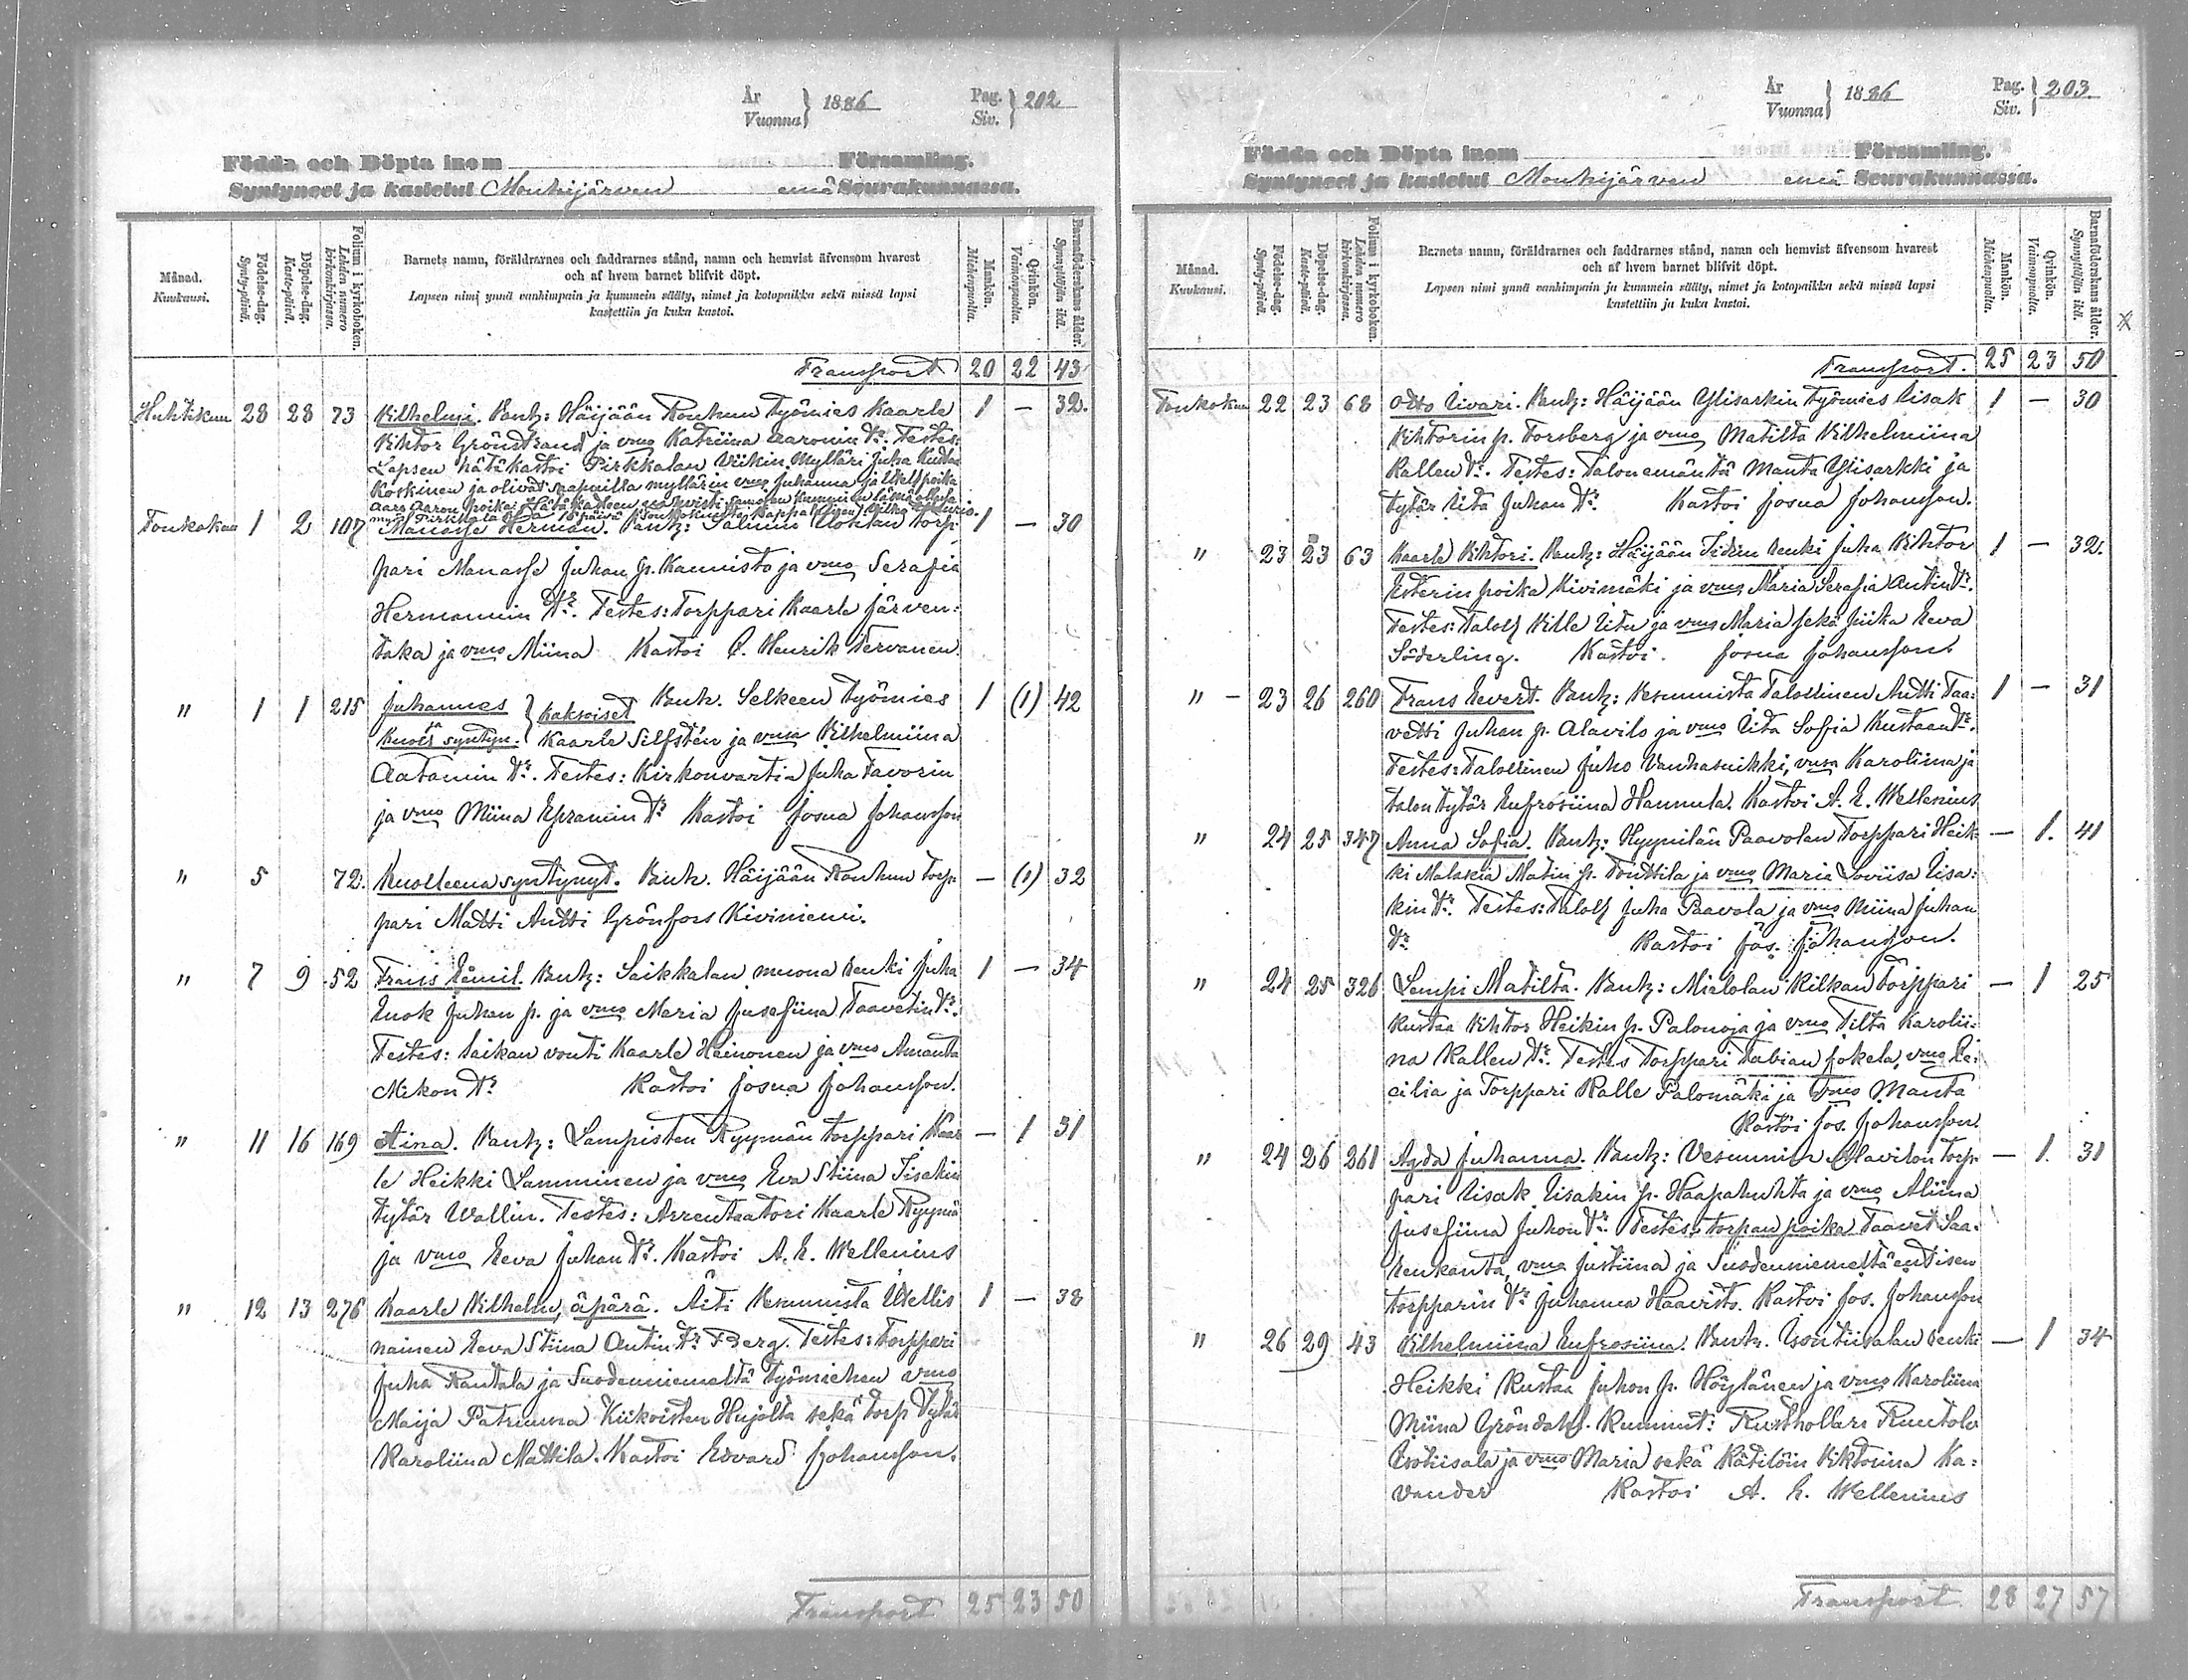 År Vuonna } 1886 Pag. Siv. } 202
Födda och Döpta inom Församling.
Syntyneet ja kastetut Mouhijärven emä Seurakunnassa.
Månad. Kuukausi.
Födelse-dag. Synty-päivä.
Döpelse-dag. Kaste-päivä.
Folium i kyrkoboken. Lehden numero kirkonkirjassa.
Barnets namn, föräldrarnes och faddrarnes stånd, namn och hemvist äfvensom hvarest
och af hvem barnet blifvit döpt.
Lapsen nimi ynnä vanhimpain ja kummein sääty, nimet ja kotopaikka sekä missä lapsi
kastettiin ja kuka kastoi.
Mankön. Miehenpuolta.
Qvinkön. Vaimonpuolta.
Barnaföderskans ålder. Synnyttäjän ikä.
Transport 20 22 43
Huhtikuu 28 28 73 Vilhelmi. Vanh: Häijään Rouhun Työmies Kaarle 1 — 32.
Vihtor Grönstrand ja vmo Katriina Aaronin tr. Testes:
Lapsen hätäkastoi Pirkkalan Mylläri Juha Kustaa
Koskinen ja olivat saapuvilla myllärin vmo Juhanna ja
Aaro Aaron poika
Toukokuu 1 2 107 Manasse Herman. Vanh: Salmin Torp- 1 — 30
pari Manasse Juhan p. Kannisto ja vmo Serafia
Hermannin tr. Testes: Torppari Kaarle Järven-
taka ja vmo Miina Kastoi Henrik Tervanen.
" 1 1 215 Juhannes } Kaksoiset Vanh. Selkeen Työmies 1 (1) 42
Kuoll. syntyn. } Kaarle Silfsten ja vmo Vilhelmiina
Aatamin tr. Testes: Kirkonvartia Juha Favorin
ja vmo Miina Epramin tr Kastoi Josua Johansson
" 5 72. Kuolleena syntynyt. Vanh. Häijään Rouhun torp- — (1) 32
pari Matti Antti Grönfors Kiviniemi.
" 7 9 52 Frans Eemil. Vanh: Saikkalan muona renki Juha 1 — 34
Enok Juhan p. ja vmo Maria Jusefiina Taavetin tr.
Testes: Saikan vouti Kaarle Heinonen ja vmo Amanta
Mikon tr Kastoi Josua Johansson.
" 11 16 169 Aina. Vanh: Lampisten Ryymän torppari Kaar- — 1 31
le Heikki Lamminen ja vmo Eva Stiina Iisakin
tytär Wallin. Testes: Arrentaatori Kaarle Ryymä
ja vmo Eeva Juhan tr. Kastoi A. E. Wellenius
" 12 13 276 Kaarle Vilhelm, äpärä. Äiti Vesunnista Itsellis 1 — 38
nainen Eeva Stiina Antin tr Berg. Testes: Torppari
Juha Rantala ja Suodenniemeltä työmiehen vmo
Maija Kiikoisten sekä torp tytär
Karoliina Mattila. Kastoi Edvard Johansson.
Transport 25 23 50
År Vuonna } 1886 Pag. Siv. } 203.
Födda och Döpta inom Församling.
Syntyneet ja kastetut Mouhijärven emä Seurakunnassa.
Månad. Kuukausi.
Födelse-dag. Synty-päivä.
Döpelse-dag. Kaste-päivä.
Folium i kyrkoboken. Lehden numero kirkonkirjassa.
Barnets namn, föräldrarnes och faddrarnes stånd, namn och hemvist äfvensom hvarest
och af hvem barnet blifvit döpt.
Lapsen nimi ynnä vanhimpain ja kummein sääty, nimet ja kotopaikka sekä missä lapsi
kastettiin ja kuka kastoi.
Mankön. Miehenpuolta.
Qvinkön. Vaimonpuolta.
Barnaföderskans ålder. Synnyttäjän ikä.
Transport. 25 23 50
Toukokuu 22 23 68 Otto Iivari. Vanh: Häijään Ylisarkin työmies Iisak 1 — 30
Vihtorin p. Forsberg ja vmo Matilta Vilhelmiina
Kallen tr. Testes: Talonemäntä Manta Ylisarkki ja
tytär Iita Juhan tr Kastoi Josua Johansson.
" 23 23 63 Kaarle Vihtori. Vanh: Häijään renki Juha Vihtor 1 — 32.
Esterin poika Kivimäki ja vmo Maria Serafia Antin tr.
Testes: Talol Ville ja vmo Maria sekä piika Eeva
Söderling. Kastoi. Josua Johansson.
" — 23 26 260 Frans Evert. Vanh: Vesunnista Talollinen Antti Taa- 1 — 31
vetti Juhan p. Alavilo ja vmo Iita Sofia Kustaan tr.
Testes: Talollinen Juho Vanhasuikki, vmo Karoliina ja
talon tytär Eufrosiina Hannula. Kastoi A. E. Wellenius
" 24 25 347 Anna Sofia. Vanh: Hyynilän Paavolan Torppari Heik- — 1. 41
ki Malakia Matin p. Touttila ja vmo Maria Loviisa Iisa-
kin tr. Testes: Talol Juha Paavola ja vmo Miina Juhan
tr Kastoi Jos. Johansson.
" 24 25 326 Lempi Matilta. Vanh: Mielolan Kilkan torppari — 1 25
Kustaa Vihtor Heikin p. Palonoja ja vmo Tilta Karolii-
na Kallen tr. Testes Torppari Fabian Jokela, vmo Ce-
cilia ja Torppari Kalle Palomäki ja vmo Manta
Kastoi Jos. Johansson.
" 24 26 261 Agda Juhanna. Vanh: Vesunnin Alavilon torp- — 1. 31
pari Iisak Iisakin p. Haapahuhta ja vmo Aliina
Jusefiina Juhon tr. Testes: torpan poika Taavet Saa-
renkanta, vmo Justiina ja Suodenniemeltä entisen
torpparin tr Juhanna Haavisto. Kastoi Jos. Johansson
" 26 29 43 Vilhelmiina Eufrosiina. Vanh. Isontiisalan renki — 1 34
Heikki Kustaa Juhon p. Höylänen ja vmo Karoliina
Miina Gröndahl. Kummit: Rusthollari Kustolv
Isotiisala ja vmo Maria sekä Kätilöin Viktoriina Ka-
vander Kastoi A. E. Wellenius
Transport 28 27 57